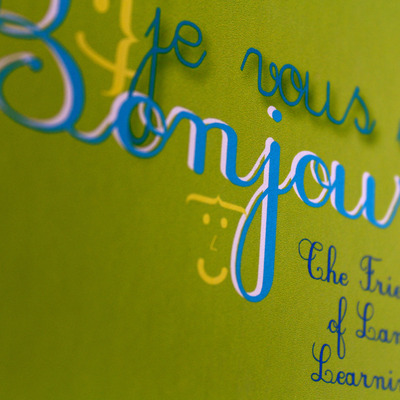 je vous
Bonjour
The Frie
of Lan
Learnin